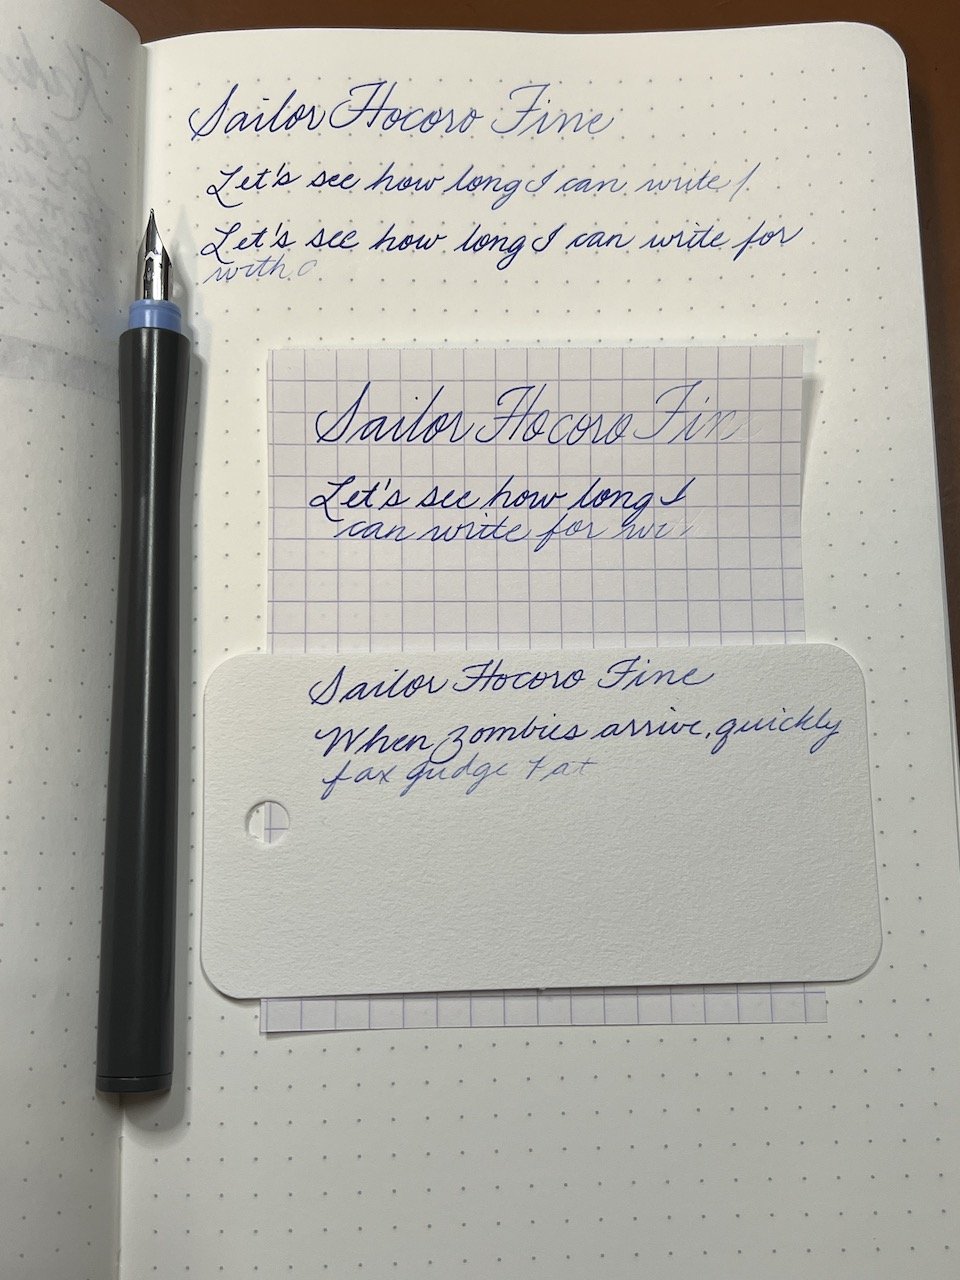 Sailor Hocoro Fine
Let's see how long I can write f
Let's see how long I can write for
with o
Sailor Hocoro Fin
Let's see how long I
can write for wi
Sailor Hocoro Fine
When zombies arrive, quickly
fax judge Pat